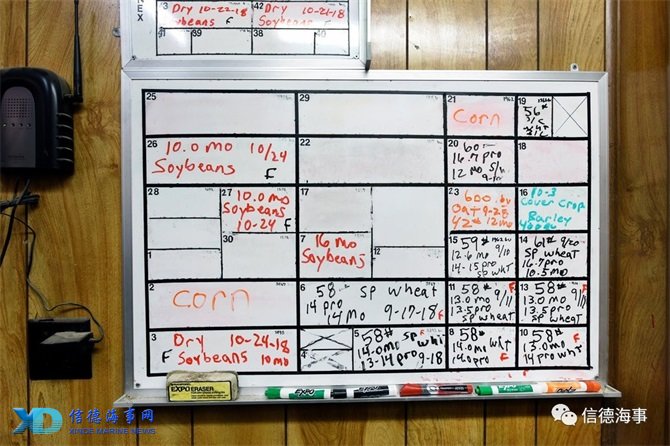 43 Dry 10-22-18
Soybeans F
42 Dry 10-21-18
Soybeans F
39
38
40
25
29
21
Corn
19
56#
26
10.0 mo 10/24
Soybeans
F
22
20
60
16.7 pro
12 mo
18
28
27
10.0 mo
Soybeans
10-24 F
17
23
600 bu
Oat 9-25
42# 12 mo
16
10-3
Cover Crop
Barley
1
30
7
16 mo
Soybeans
12
15
59#
12.6 mo 9/10
14-15 pro
Sp wht
14
61# 9/20
Sp wheat
16.7 pro
10.5 mo
2
Corn
6
58 Sp wheat
14 pro
14 mo 9-19-18 F
11
58# F
13.0 mo 9/11
13.5 pro
Sp wheat
13
58# 9/
13.0 mo
13.5 pro
Sp wheat
3
Dry 10-24-18
F Soybeans 10 mo
4
5
58# Sp wht F
14.0 mo
13-14 pro 9-18
8
58#
14.0 mo wht
14.0 pro F
10
58# F
13.0 mo
14 pro wht
EXPO ERASER
EXPO
XD 信德海事网
XINDE MARINE NEWS
信德海事